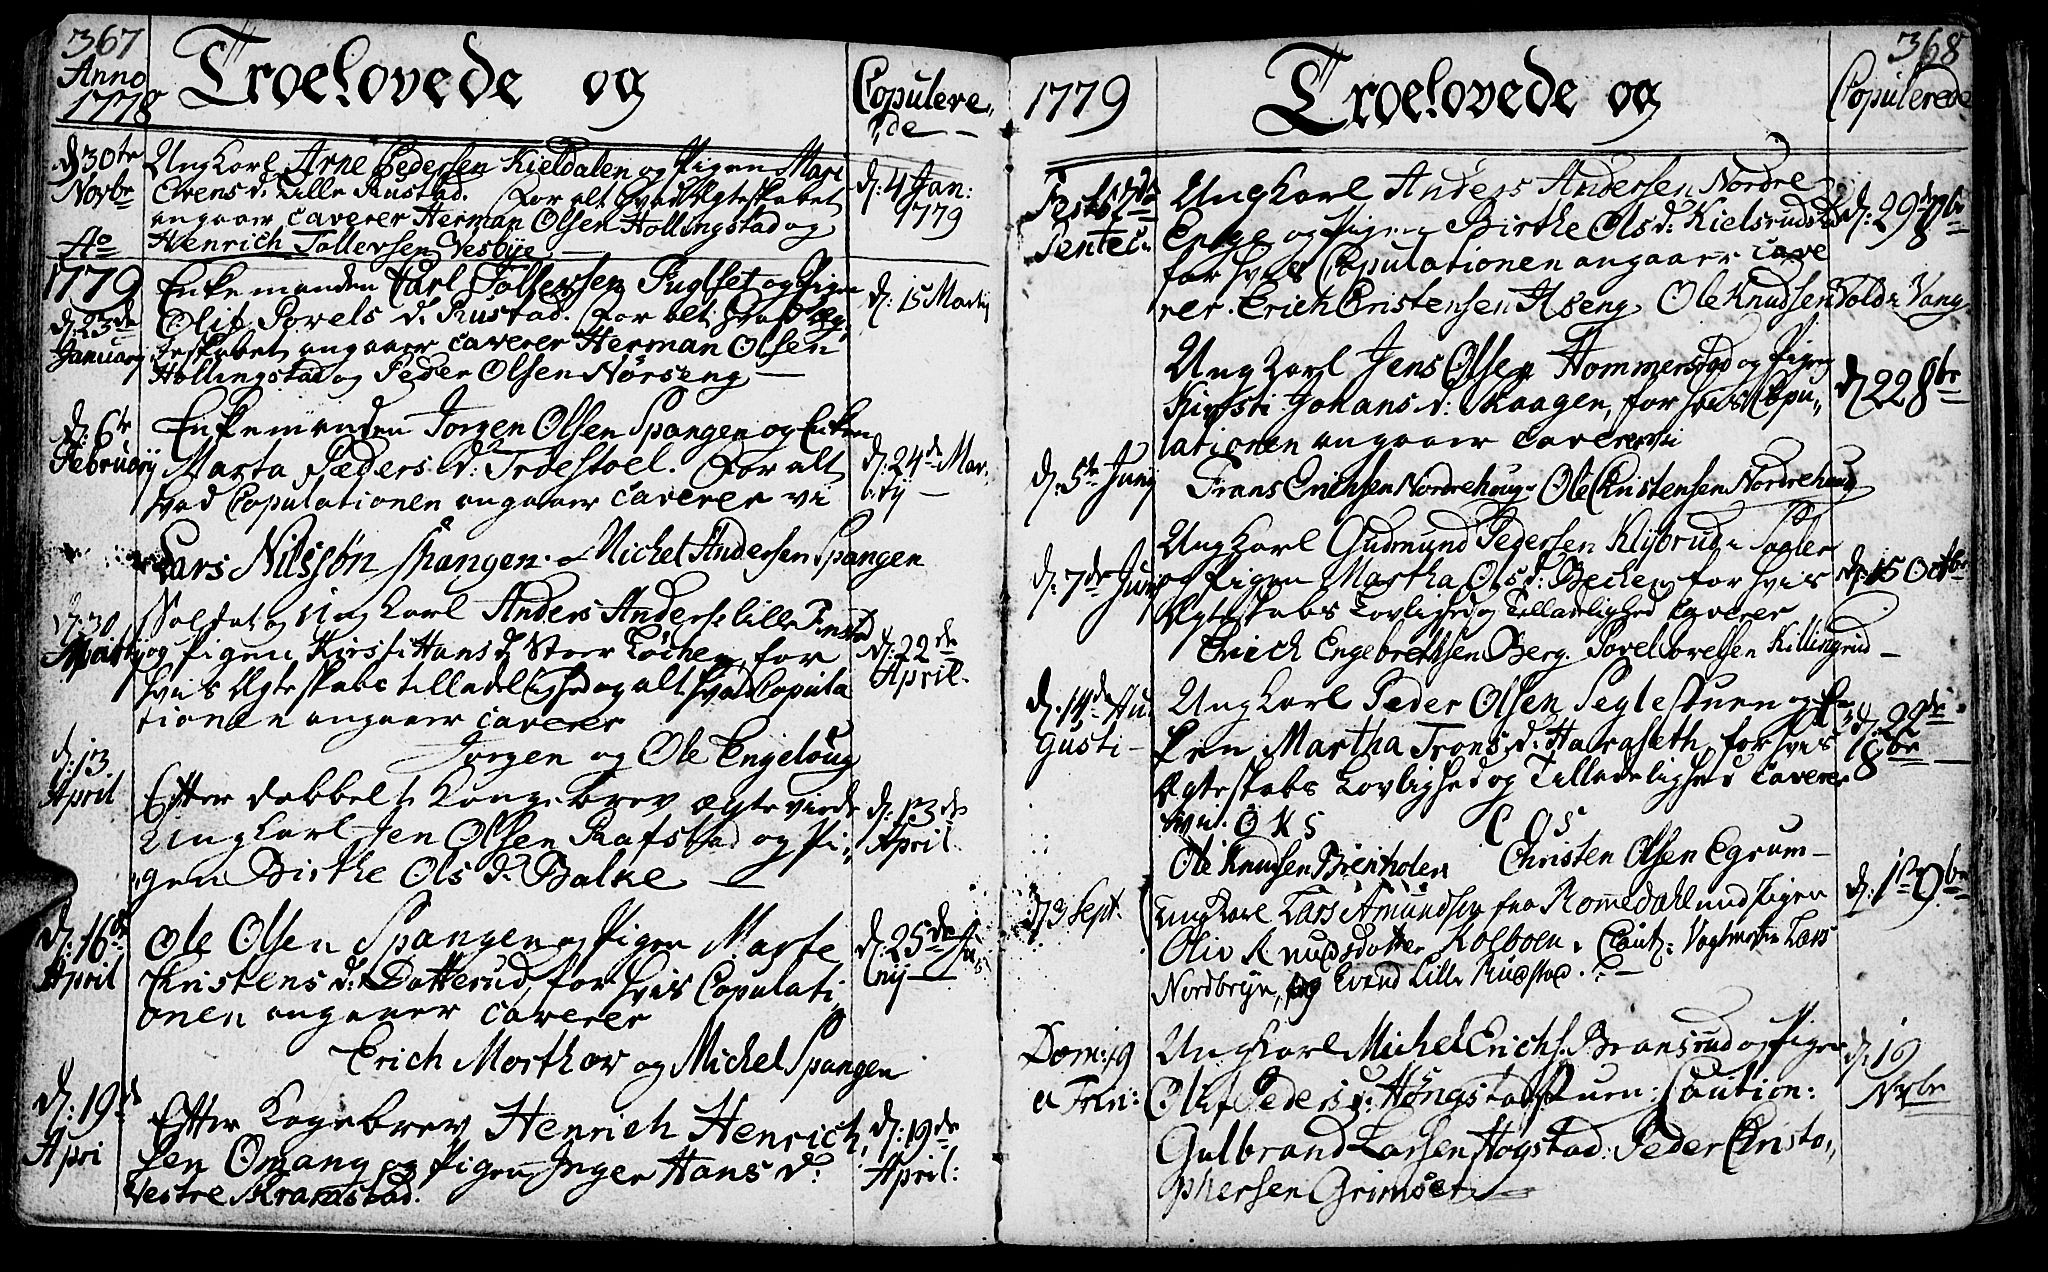 367
Anno
1778
Troelovede og
Copulere„
„de —
d 30te
Novbr
Ung Karl Arne Pedersen Kieldalen og Pigen Mari
Evens d. Lille Rustad. For alt hvad Ægteskabet
angaaer caverer Herman Olsen Hollingstad og
Henrich Tollersen Vesbye. —
d. 4 Jan:
1779
Ao
1779
d. 23de
January
Enkemanden Carl Tollefsen Fuglset og Pigen
Olif Povels d. Rustad. For alt hvad Æg„
teskabet angaaer caverer Herman Olsen
Hollingstad og Peder Olsen Nørseng —
d. 15 Martij
d. 6te
February
Enkemanden Jørgen Olsen Spangen og Enken
Marta Pæders d: Troestoel. For alt
hvad Copulationen angaaer caverer vi
Lars Nilssøn Spangen. Michel Andersen Spangen
d: 24de Mar„
tij —
d: 30
Martij
Soldat og Ung Karl Anders Anders: lille Finstad
og Pigen Kirsti Hans d. Stoer Løchen, for
hvis Ægteskabs tilladelighed og alt hvad Copula
tionen angaaer caverer
Jørgen og Ole Engeloug
d. 22de
April.
d: 13
April
Efter dobbelt Kongebrev ægteviede
Ung Karl Jen Olsen Rafstad og Pi„
„gen Birthe Ols d. Balke —
d. 13de
April.
d: 16de
April
Ole Olsen Spangen og Pigen Marte
Christens d: Dotterud, for hvis Copulati
onen angaaer caverer
Erich Morthor og Michel Spangen
d. 25de Ju„
nij —
d: 19de
Apri
Efter Kongebrev Henrich Henrich„
sen Omang og Pigen Inger Hans d:
Vestre Kramstad.
d: 19de
April:
1779
Troelovede og
368
Copulerede
Festo 2da
Pentec:
Ung Karl Anders Andersen Nordre
Enge og Pigen Birthe Ols d: Kielsrud
for hvis Copulationen angaaer cave
rer. Erich Cristensen Aseng Ole Knudsen Told: Vang.
d: 29de 8br
d. 5te Junij
Ung Karl Jens Olsen Hommerstad og Pigen
Kirsti Johans d: Kaagen, for hvis Copu„
lationen angaaer caverer vi
Frans Erichsen Nordrehoug. Ole Christensen Nordrehoug
d. 22 8br
d. 7de Junij
Ung Karl Gudmund Pedersen
og Pigen Martha Ols d: Becken, for hvis
Ægteskabs Lovlighed og Tilladelighed caverer
Erich Engebretsen Berg. Povel Povelsen Killingrud —
d: 15 Octbr
d. 14de Au„
gusti —
Ung Karl Peder Olsen Seglestuen og En„
ken Martha Trons d. Harahseth, for hvis
Ægteskabs Lovlighed og Tilladelighed caverer
vi. O K S C O S
Ole Knudsen Christen Olsen Egrum —
d. 22de
8br —
d 3 Sept.
Ung Karl Lars Amundsen fra Romedahl und Pigen
Oliv Knudsdotter Kolboen. Caut: Vagtmester Lars
Nordbryn, og Evend Lille Rudstad. —
d. 1te 9br
Dom: 19
a Trin:
Ung Karl Michel Erichs. Bransrud og Pigen
Olif Peders d: Høngstadstuen: Caution:
Gulbrand Larsen Hogstad. Peder Christo„
phersen Grimset. —
d: 19
Nvbr